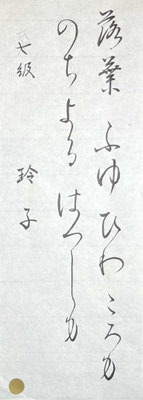 落葉 ふゆ ひわ ころも
のちよる はつしも
七級 玲子